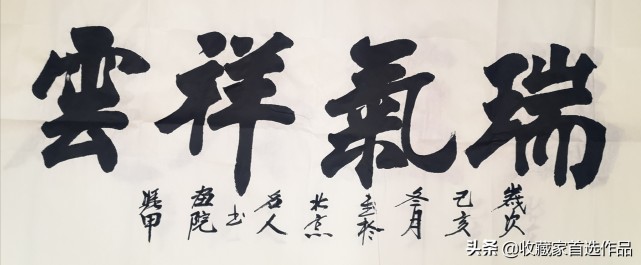 瑞氣祥雲
歲次
己亥
冬月
於
北京
名人
书
画院
头条 @收藏家首选作品